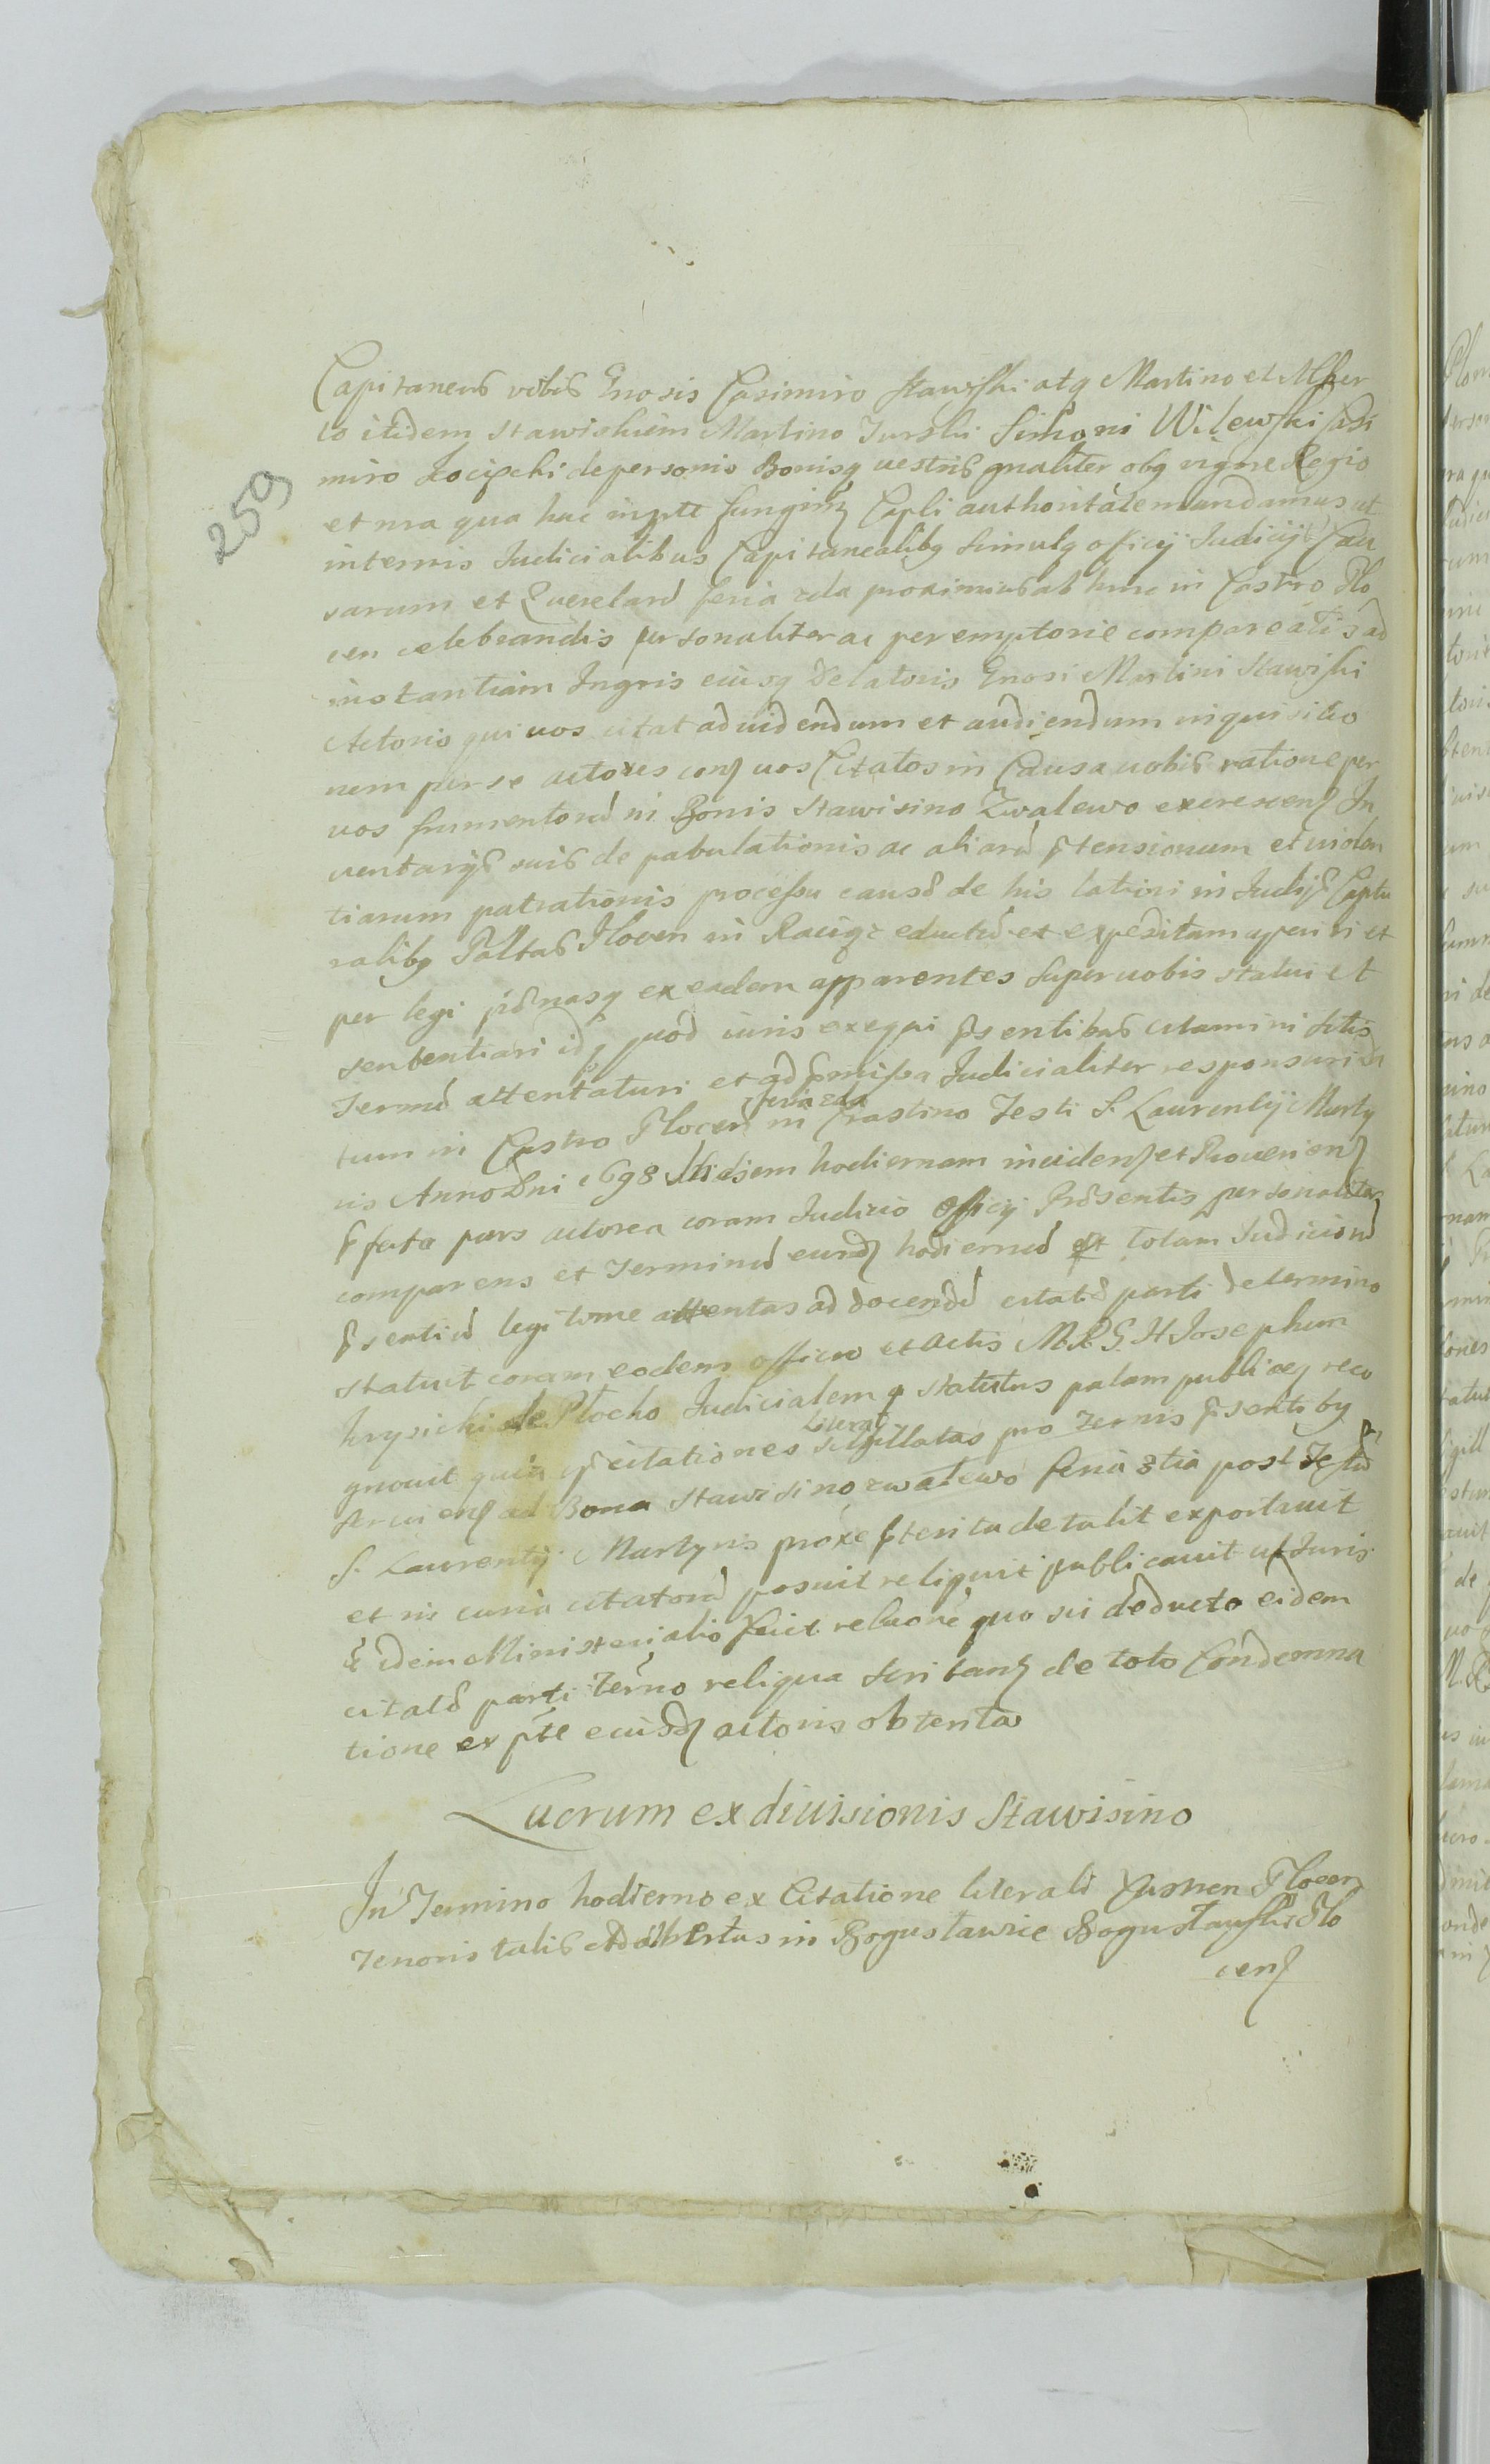 259
Capitaneus vobis Gnosis Casimiro Stawiski atq Martino et Alber
to itidem Stawiskim Martino Turski Simoni Wilewski Casi
miro Kocięcki de personis Bonisq vestris gnaliter obq vigore Regio
et nra qua hac in pte fungimz Capli authoritate mandamus ut
in ternis Judicialibus Capitanealibq simulq officij Judicijq Cau
sarum et Querelard feria 2da proximius ab hinc in Castro Plo
cen celebrandis personaliter ac peremptorie compareatis ad
instantiam Ingris eiusq Delatoris Gnosi Martini Stawiski
Actoris qui vos citat ad videndum et audiendum inquisitio
nem per se actores conz vos Citatos in Causa vobis ratione per
vos frumentord in Bonis Stawisino Zwalewo excrescenz In
ventarys suis depabulationis ac aliard ptensionum et violen
tiarum patrationis processu causs de his latiori in Judijs Captu
ralibq Paltus Plocen in Raciąż eductd et expeditam aperiri et
per legi pnasq ex eadem apparentes super vobis statui et
sententiari idq quod iuris exequi psentibus citamini sitis
Termd attentaturi et ad pmissa Judicialiter responsuri Da
tum in Castro Plocen feria 2da in Crastino Festi S. Laurentij Marty
ris Anno Dni 1698 Ad diem hodiernam incidenz et Provenienz
pfata pars actorea coram Judicio Officij Prsentis personaliter
comparens et Termind eundz hodiernd et totam Judiciond
psentid legitime attentas ad docendd citats parti de termino
statuit coram eodem officio et actis M. R. G. H Josephum
krysicki de Plocko Judicialem q statutus palam publiceq reco
gnovit quia ps citationes Literal sigillatas pro ternis psentibq
servienz ad Bona Stawisino Zwalewo feria 3tia post Festd
S. Laurentij Martyris proxe pterita detulit exportavit
et in curia citatord posuit reliquit publicavit ut Juris
& idem Ministerialis fecit relaone quo sic deducto eidem
citats parti terno reliqua scribanz de toto Condemna
tione ex pte eiusdz actoris obtenta
Lucrum ex divisionis Stawisino
In Termino hodierno ex Citatione literali Castren Plocen
Tenoris talis Adalbertus in Bogusławice Bogusławski Plo
cenz